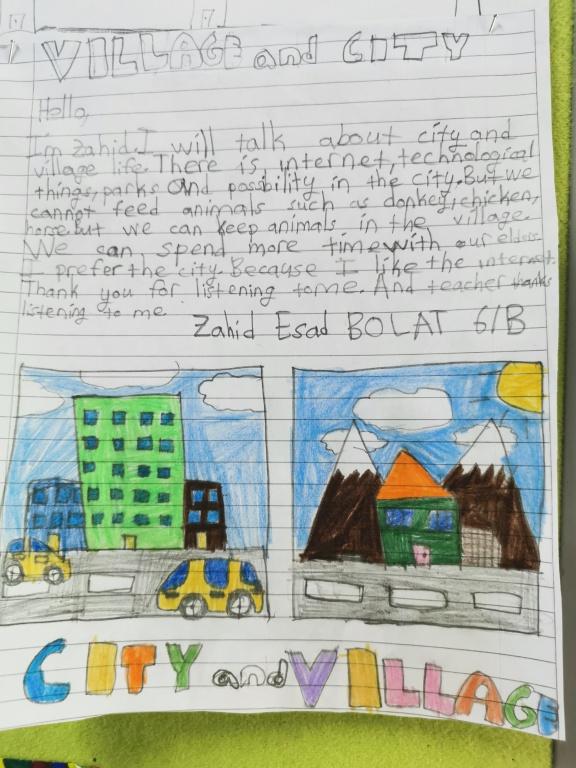 VILLAGE and CITY
Hello,
I'm Zahid. I will talk about city and
village life. There is internet, technological
things, parks and possibility in the city. But we
cannot feed animals such as donkey, chicken,
horse. but we can keep animals in the village.
We can spend more time with our elders
I prefer the city. Because I like the internet.
Thank you for listening to me. And teacher thanks
listening to me.
Zahid Esad BOLAT 6/B
CITY and VILLAGE